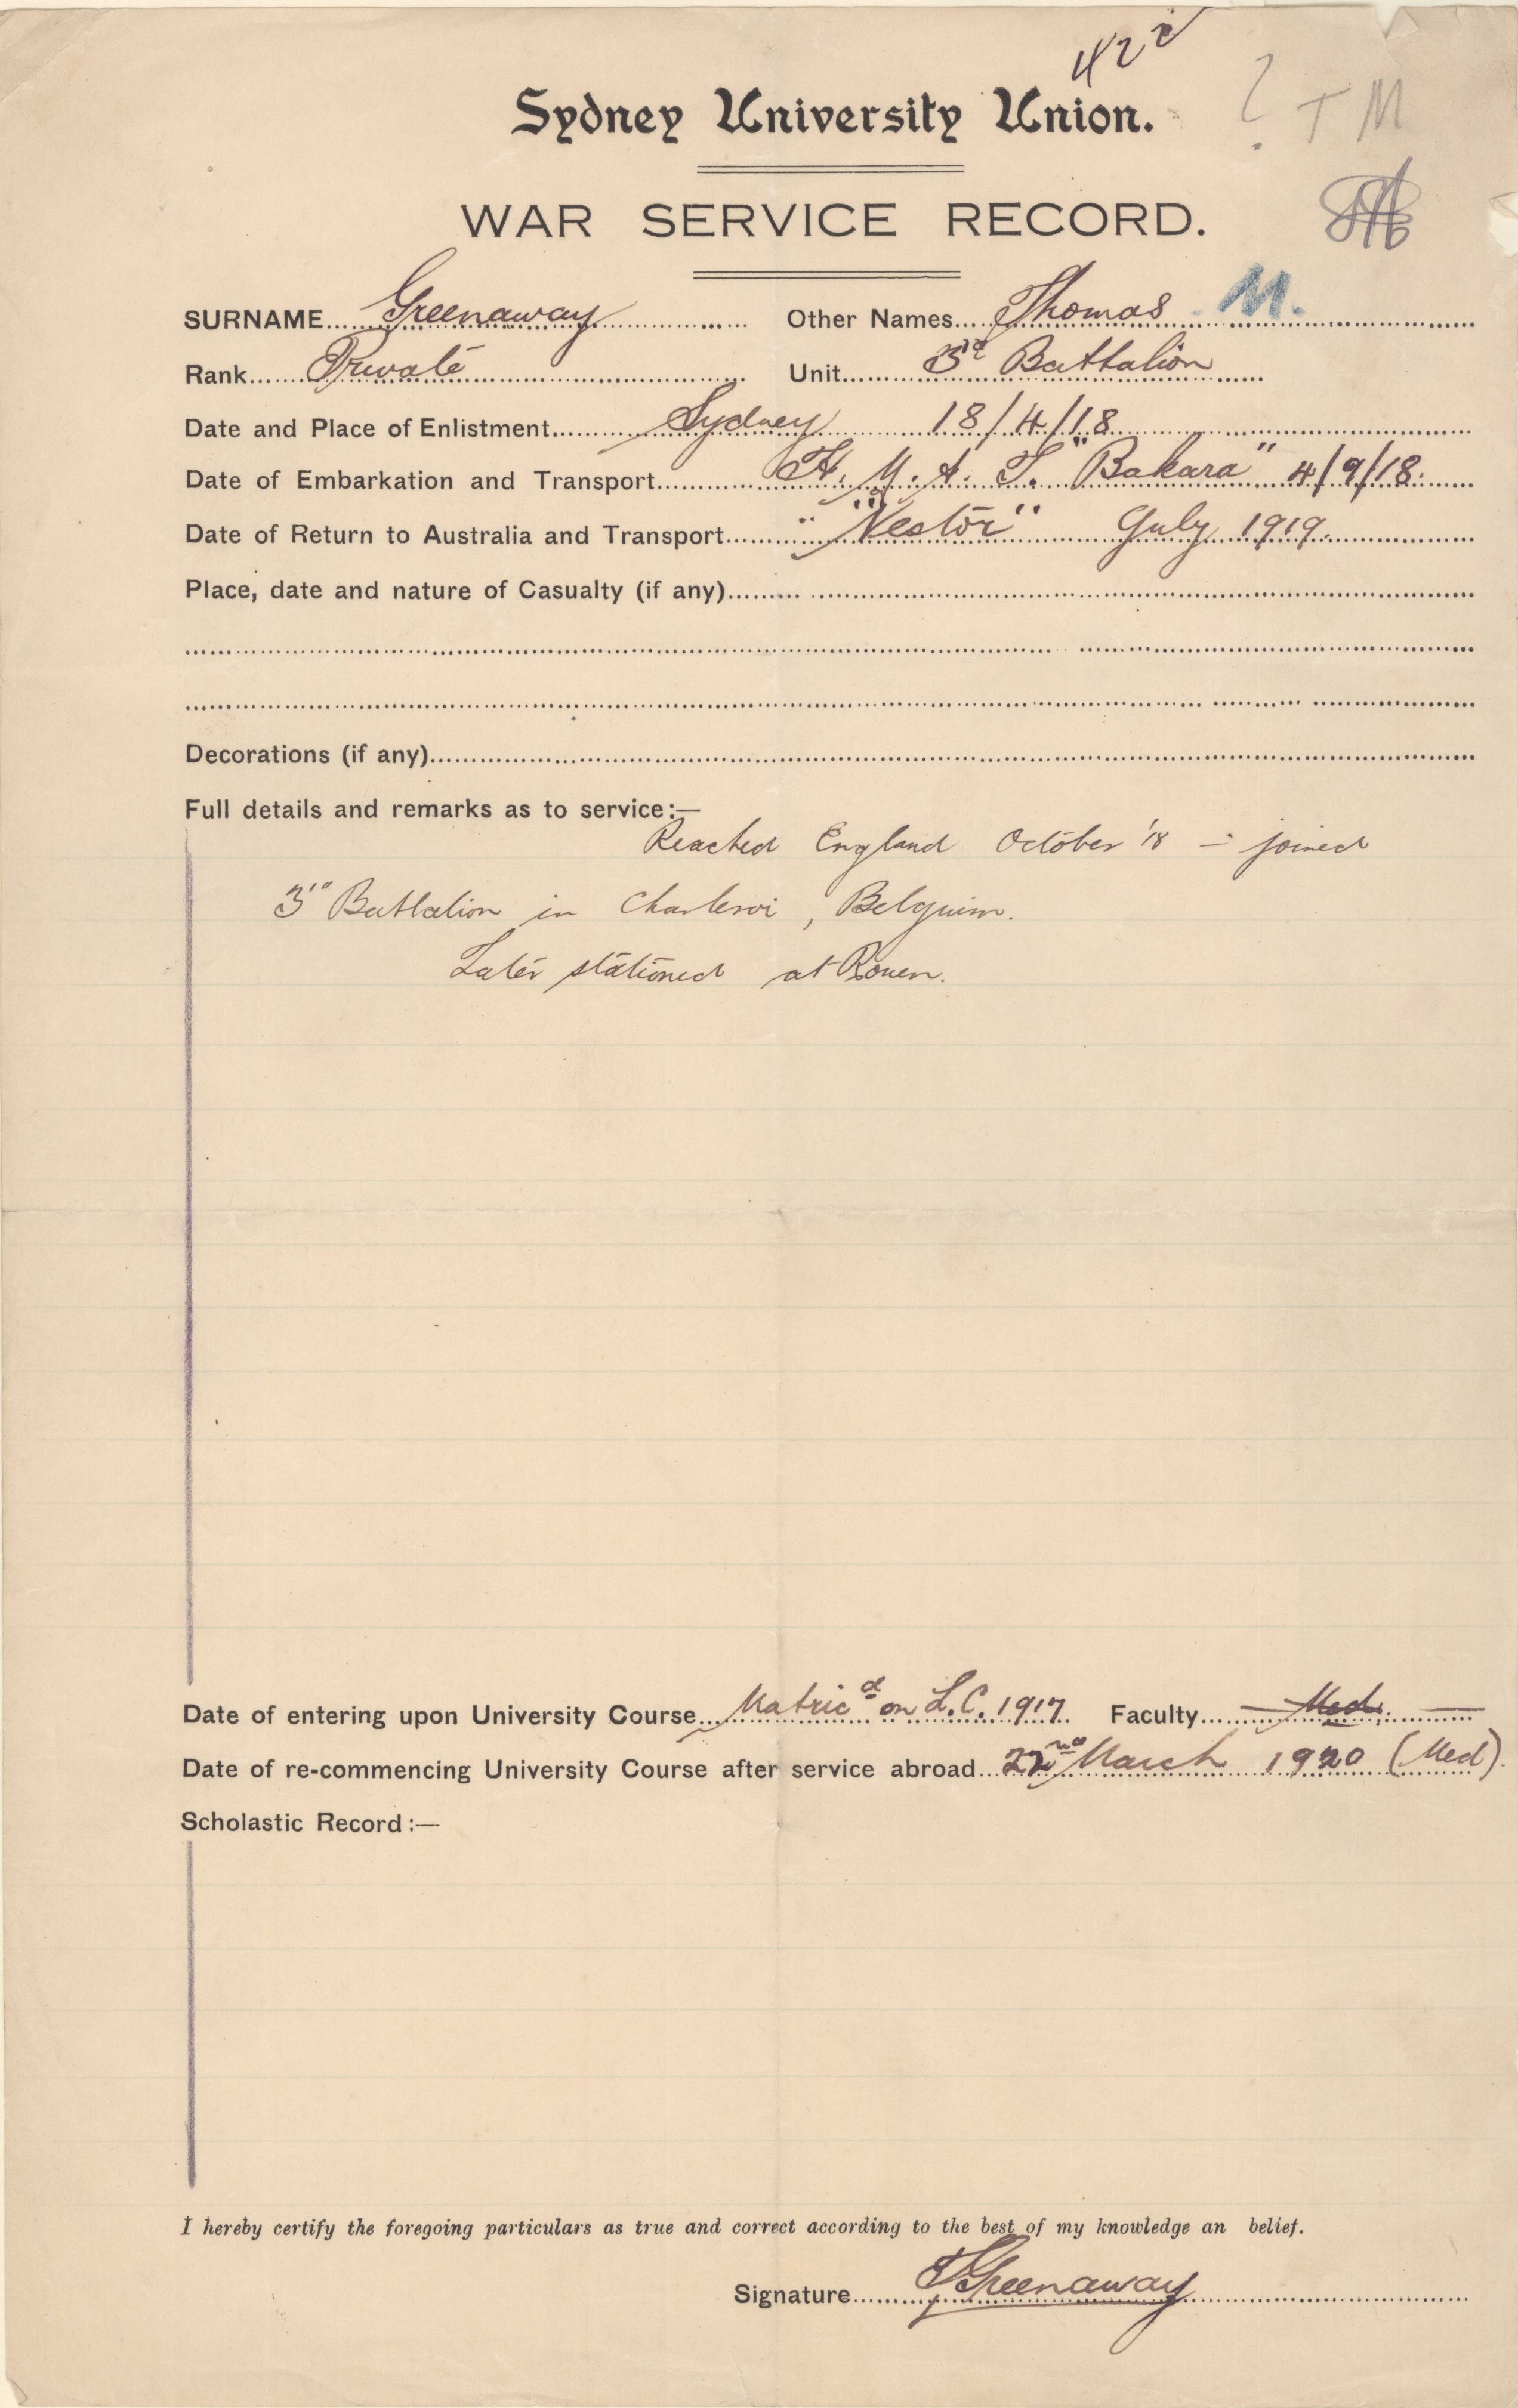 422
Sydney University Union.
? TM
WAR SERVICE RECORD.
SURNAME Greenaway Other Names Thomas M.
Rank Private Unit 3rd Battalion
Date and Place of Enlistment Sydney 18/4/18
Date of Embarkation and Transport H. M. A. T. "Bakara" 4/9/18.
Date of Return to Australia and Transport "Nestor" July 1919.
Place, date and nature of Casualty (if any)
Decorations (if any)
Full details and remarks as to service:—
Reached England October '18 — joined
3rd Battalion in Charleroi, Belguim.
Later stationed at Rouen.
Date of entering upon University Course Matricd on L.C. 1917. Faculty — Med. —
Date of re-commencing University Course after service abroad 22nd March 1920 (Med).
Scholastic Record:—
I hereby certify the foregoing particulars as true and correct according to the best of my knowledge an belief.
Signature T Greenaway